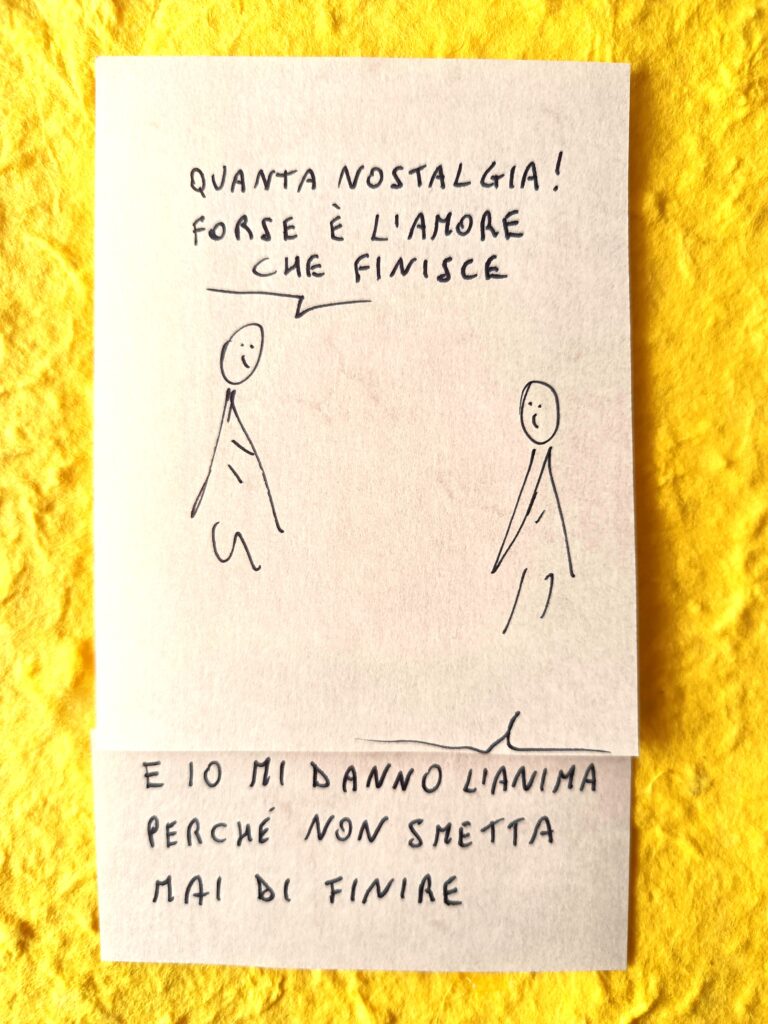 QUANTA NOSTALGIA!
FORSE È L'AMORE
CHE FINISCE
E IO MI DANNO L'ANIMA
PERCHÉ NON SMETTA
MAI DI FINIRE